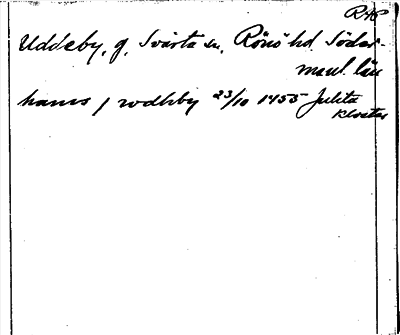 RAP
Uddeby, g. Svärta sn, Rönö hd. Söder-
manl. län
hanis j wdhby 23/10 1455 Julita
kloster